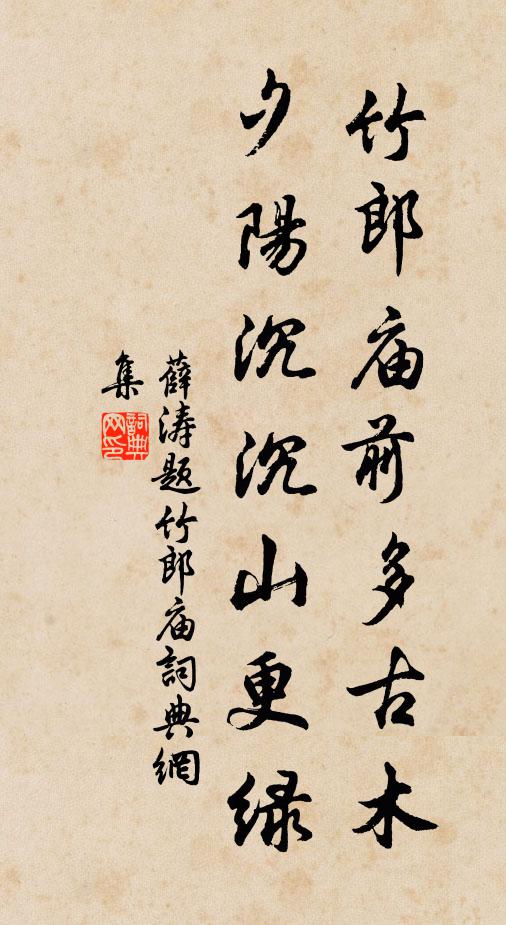 竹郎庙前多古木
夕陽沉沉山更绿
薛涛题竹郎庙詞典網
集
詞典网印